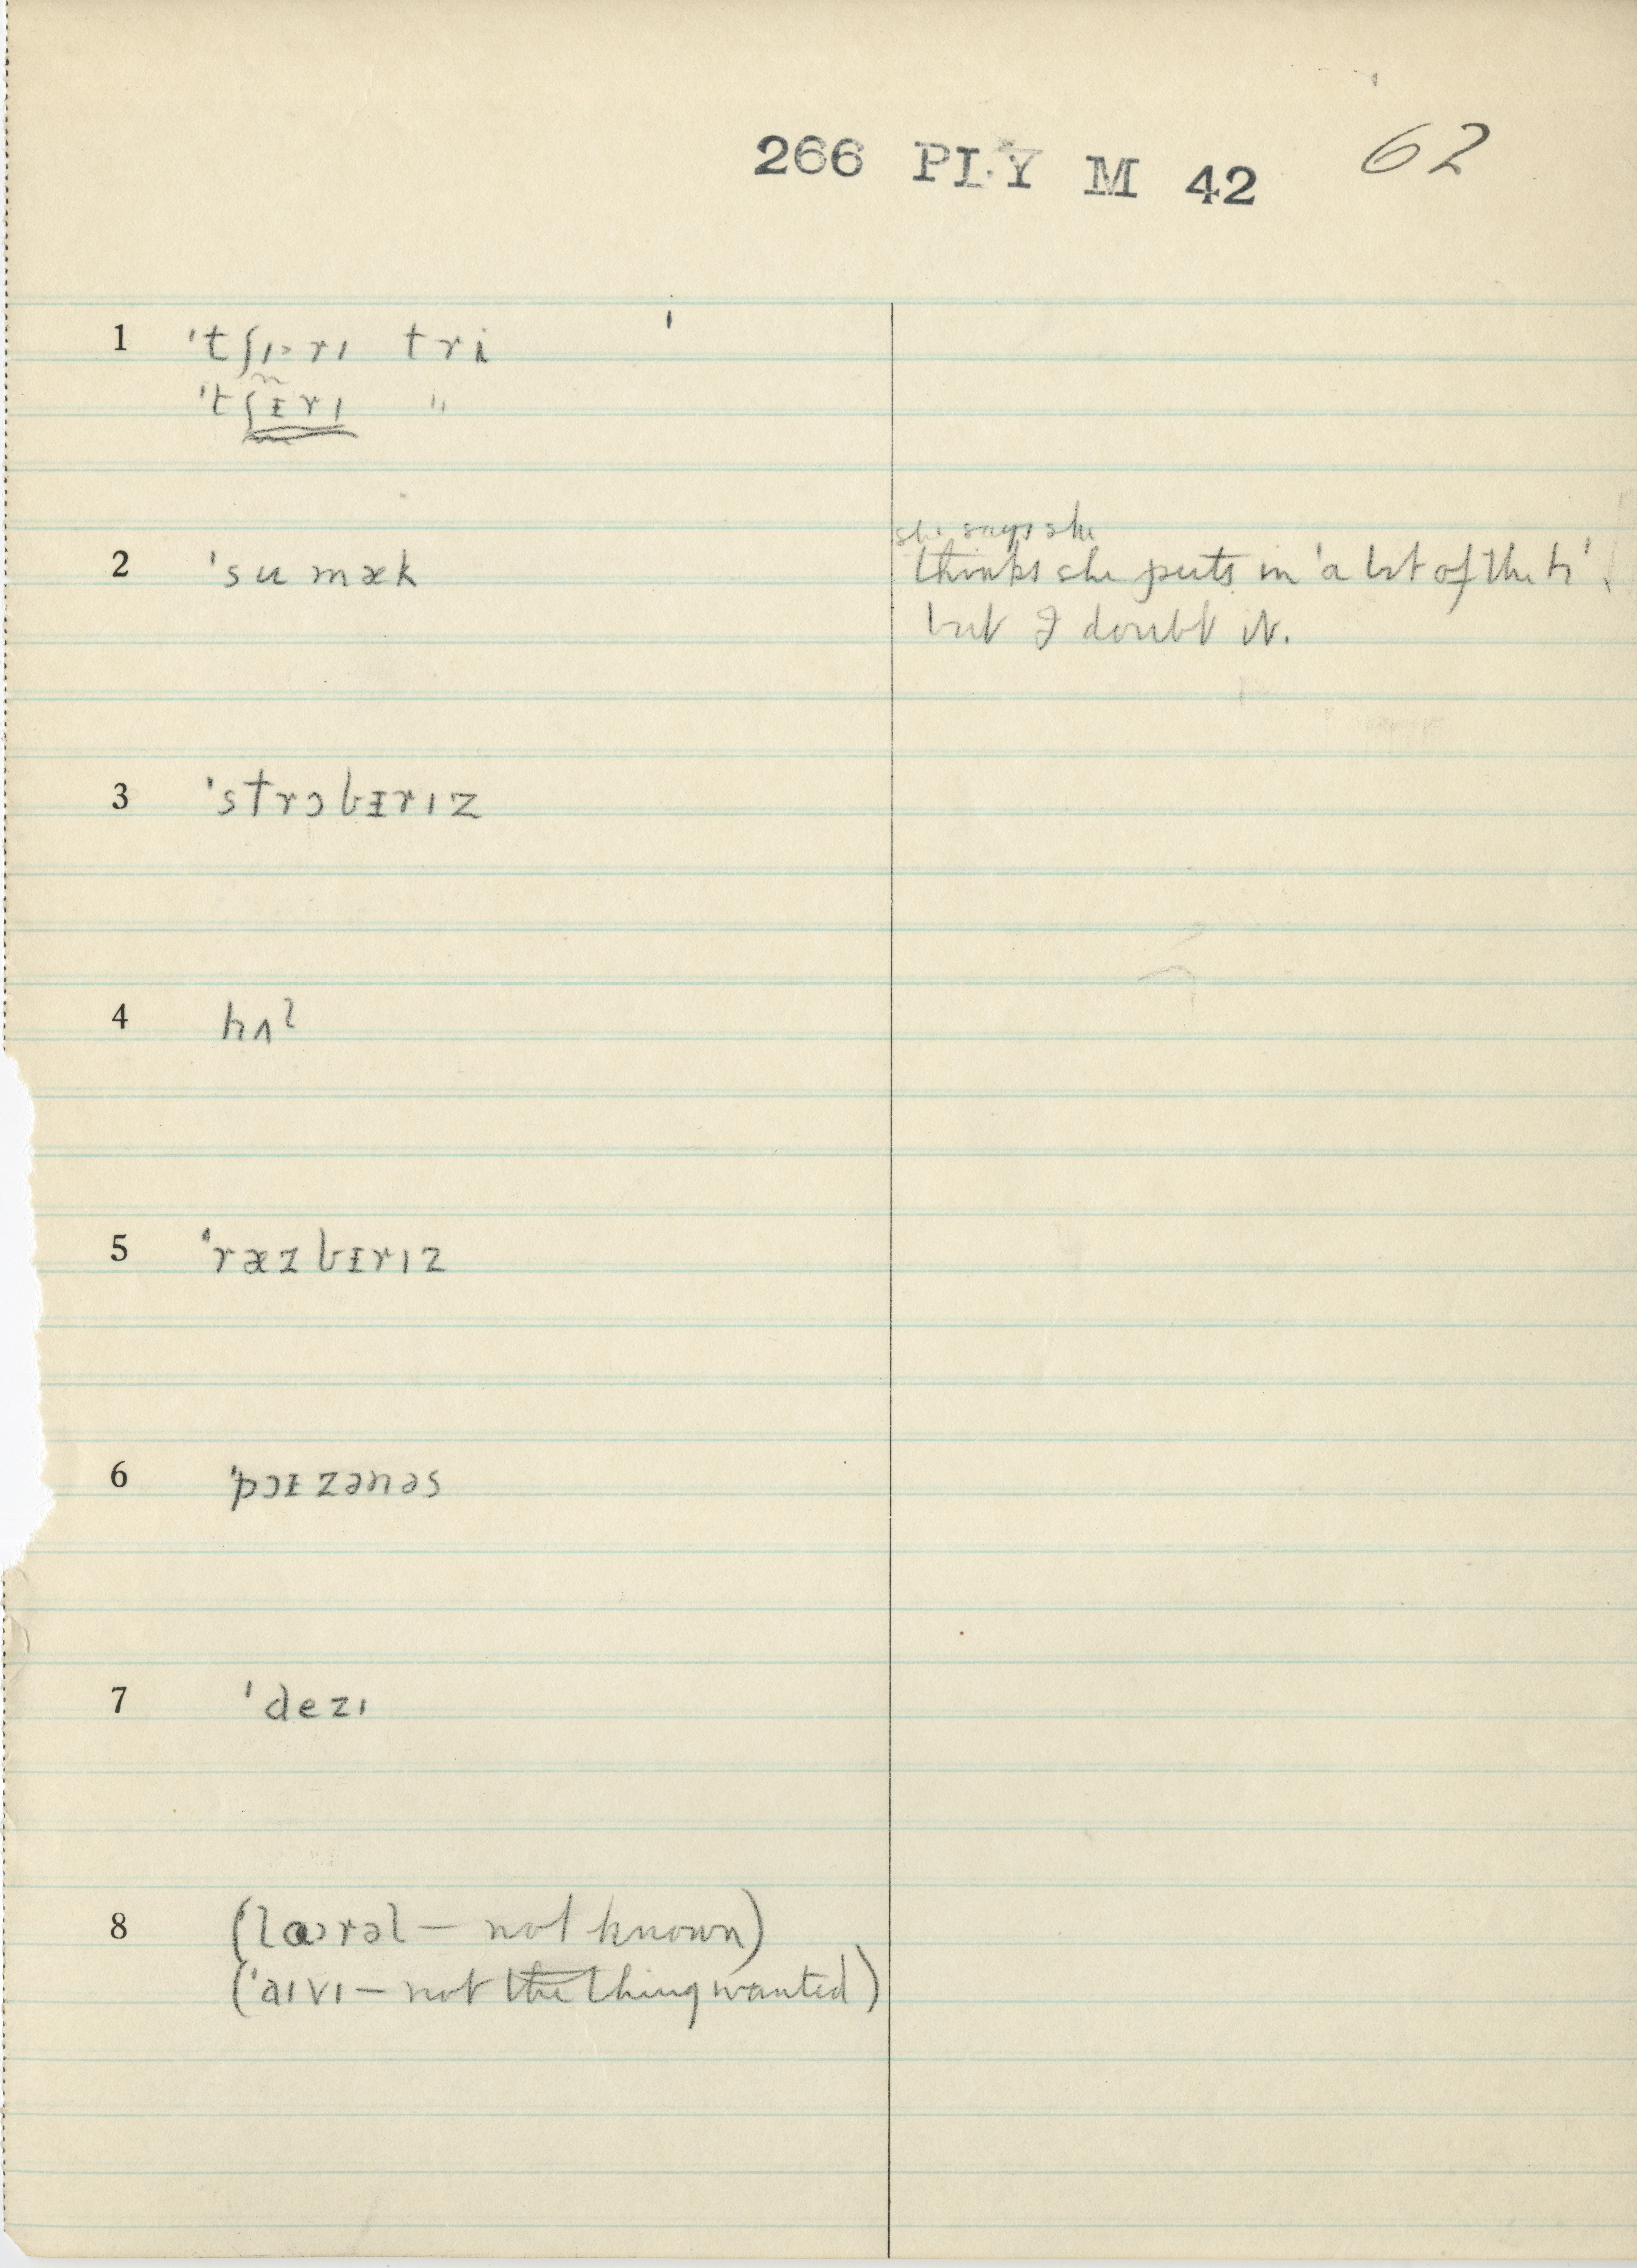 266 PLY M 42 62
1 ˈtʃɪ˞rɪ tri
ˈtʃᵻrɪ "
2 ˈsumæk
she says she
thinks she puts in 'a bit of the h'
but I doubt it.
3 ˈstrɔbᵻrɪz
4 hʌl
5 ˈræzbᵻrɪz
6 ˈpɔᵻzənəs
7 ˈdezɪ
8 (lɒrəl – not known)
(ˈaɪvɪ – not the thing wanted)